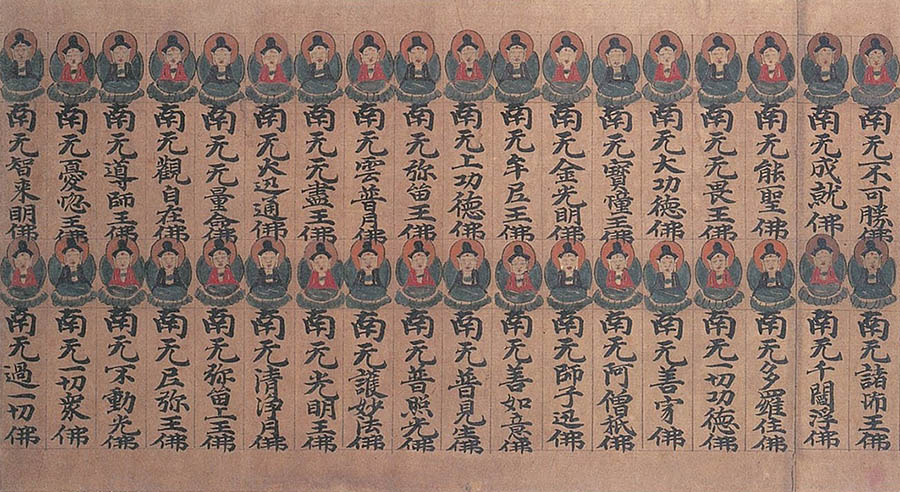 南无不可勝佛
南无成就佛
南无能聖佛
南无无畏王佛
南无大功德佛
南无寶幢王佛
南无金光明佛
南无牟尼王佛
南无上功德佛
南无弥留王佛
南无雲普月佛
南无无盡王佛
南无火迅通佛
南无无量命佛
南无觀自在佛
南无導師王佛
南无憂王佛
南无智來明佛
南无諸師王佛
南无千閻浮佛
南无多羅住佛
南无一切功德佛
南无善守佛
南无阿僧祇佛
南无師子迅佛
南无善如意佛
南无普見佛
南无普照光佛
南无護妙法佛
南无光明王佛
南无清淨月佛
南无弥留上王佛
南无尼弥王佛
南无不動光佛
南无一切衆佛
南无過一切佛